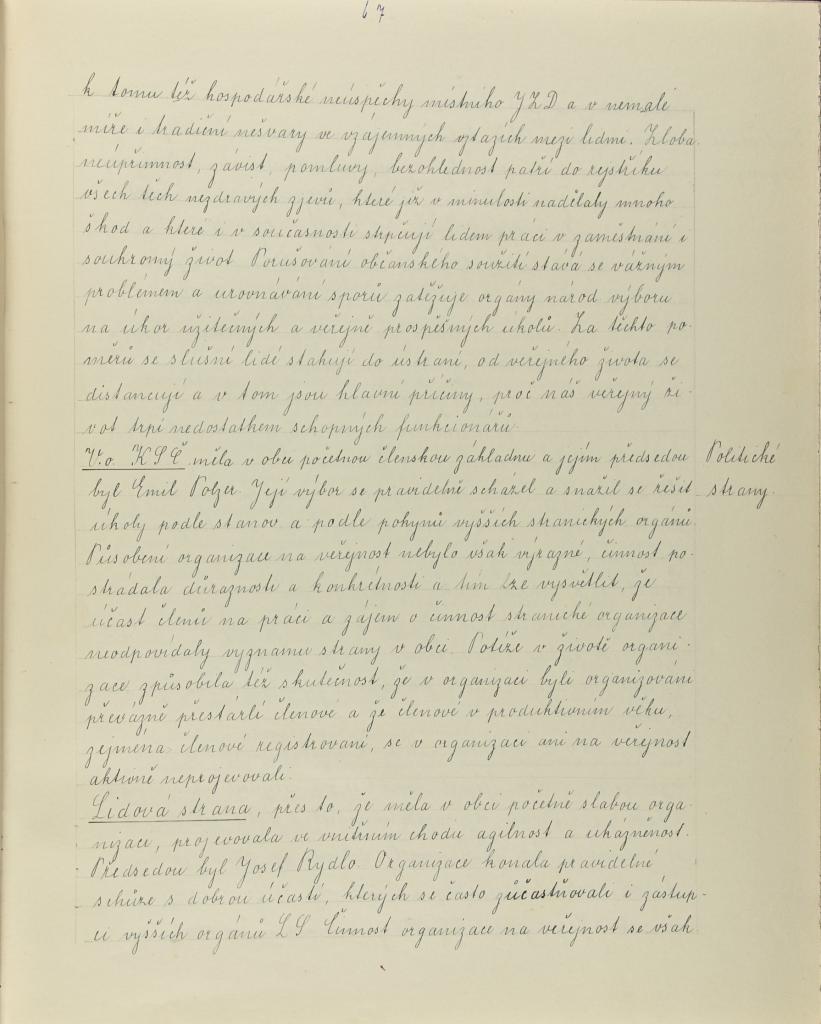 67
k tomu též hospodářské neúspěchy místního JZD a v nemalé
míře i tradiční nešvary ve vzájemných vztazích mezi lidmi. Zloba
neupřímnost, závist, pomluvy, bezohlednost patří do rejstříku
všech těch nezdravých zjevů, které již v minulosti nadělaly mnoho
škod a které i v současnosti ztrpčují lidem práci v zaměstnání i
soukromý život. Porušování občanského soužití stává se vážným
problémem a urovnávání sporů zatěžuje orgány národ. výboru
na úkor užitečných a veřejně prospěšných úkolů. Za těchto po-
měrů se slušní lidé stahují do ústraní, od veřejného života se
distancují a v tom jsou hlavní příčiny, proč náš veřejný ži-
vot trpí nedostatkem schopných funkcionářů.
V.o. KSČ měla v obci početnou členskou základnu a jejím předsedou
Politické
byl Emil Polzer. Její výbor se pravidelně scházel a snažil se řešit
strany.
úkoly podle stanov a podle pokynů vyšších stranických orgánů.
Působení organizace na veřejnost nebylo však výrazné, činnost po-
strádala důraznosti a konkrétnosti a tím lze vysvětlit, že
účast členů na práci a zájem o činnost stranické organizace
neodpovídaly významu strany v obci. Potíže v životě organi-
zace způsobila též skutečnost, že v organizaci byli organizováni
převážně přestárlí členové a že členové v produktivním věku,
zejména členové registrovaní, se v organizaci ani na veřejnost
aktivně neprojevovali.
Lidová strana, přes to, že měla v obci početně slabou orga-
nizaci, projevovala ve vnitřním chodu agilnost a ukázněnost.
Předsedou byl Josef Rydlo. Organizace konala pravidelné
schůze s dobrou účastí, kterých se často zúčastňovali i zástup-
ci vyšších orgánů LS. Činnost organizace na veřejnost se však